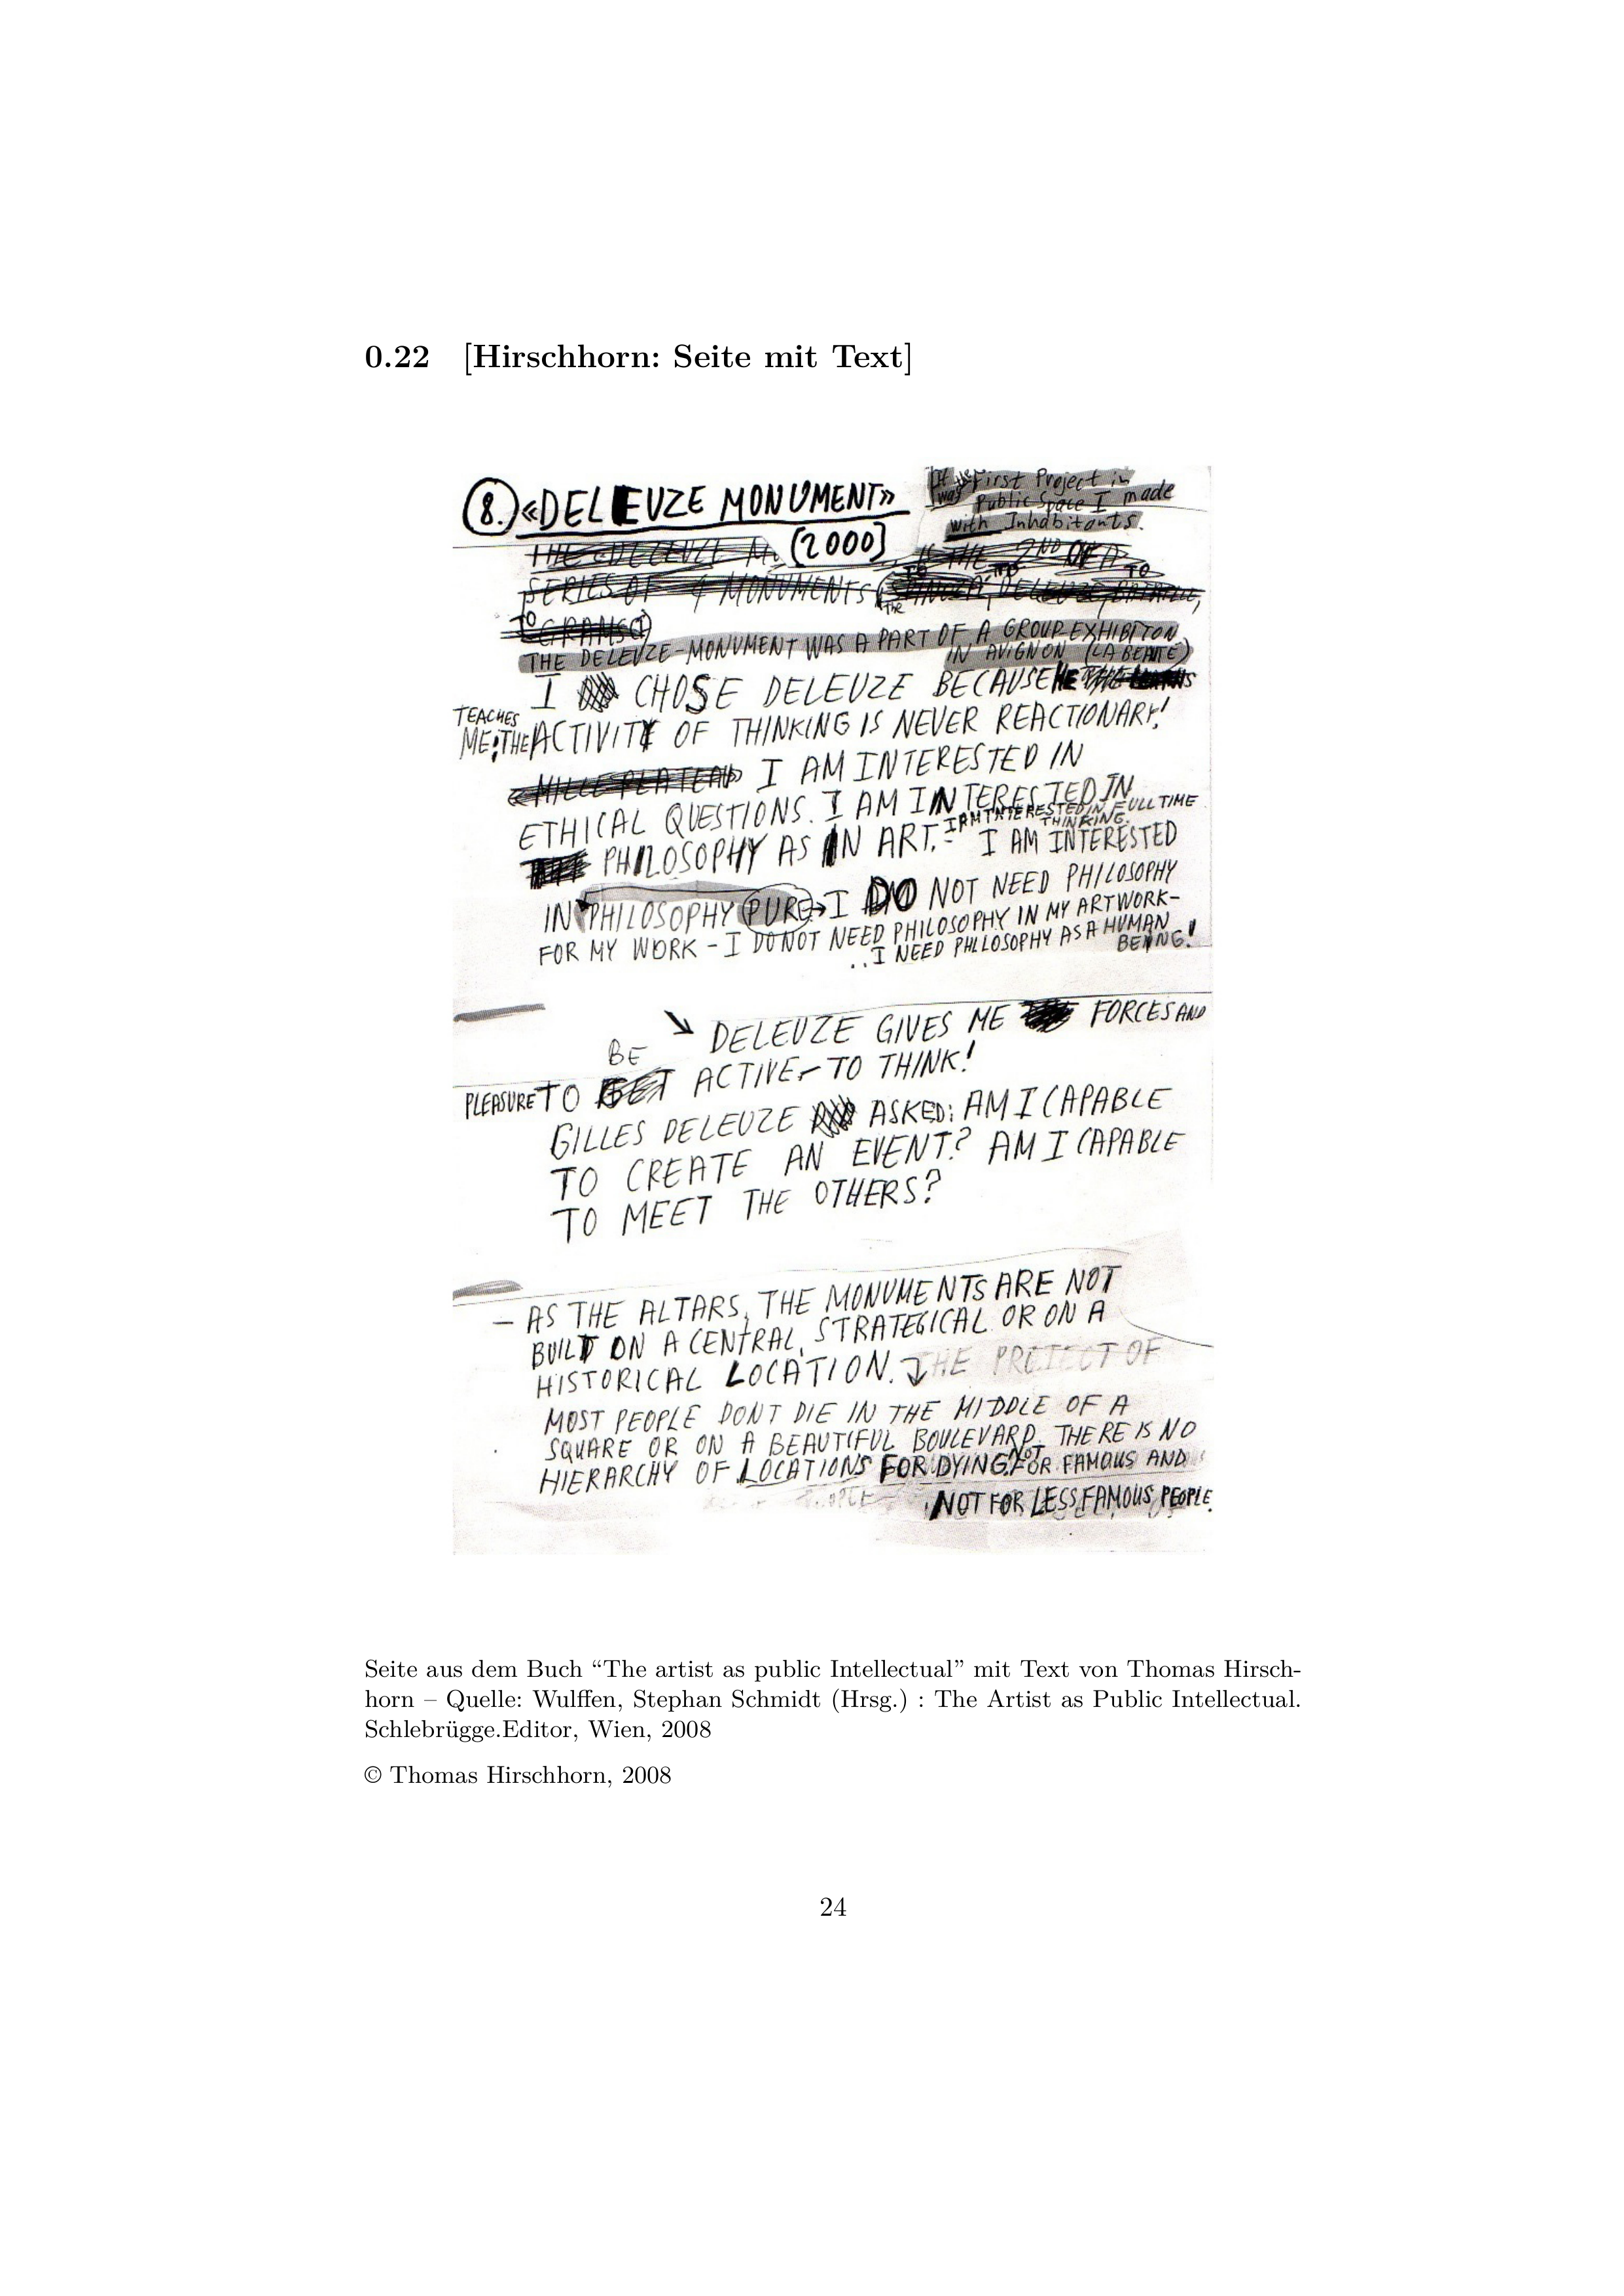 0.22 [Hirschhorn: Seite mit Text]
8. «DELEUZE MONUMENT»
(2000)
It was First Project in
Public Space I made
with Inhabitants.
THE «DELEUZE IS THE 2ND OF A
SERIES OF 4 MONUMENTS
TO GRAMSCI)
THE DELEUZE-MONUMENT WAS A PART OF A GROUP-EXHIBITON
IN AVIGNON (LA BEAUTÉ)
I CHOSE DELEUZE BECAUSE HE
TEACHES
ME: THE ACTIVITY OF THINKING IS NEVER REACTIONARY!
«MILLE PLATEAU» I AM INTERESTED IN
ETHICAL QUESTIONS. I AM INTERESTED IN
PHILOSOPHY AS IN ART. - I AM INTERESTED IN FULL TIME
THINKING.
I AM INTERESTED
IN PHILOSOPHY PURE → I DO NOT NEED PHILOSOPHY
FOR MY WORK - I DO NOT NEED PHILOSOPHY IN MY ARTWORK-
..I NEED PHILOSOPHY AS A HUMAN
BEING!
DELEUZE GIVES ME FORCES AND
BE
PLEASURE TO GET ACTIVE - TO THINK!
GILLES DELEUZE ASKED: AM I CAPABLE
TO CREATE AN EVENT? AM I CAPABLE
TO MEET THE OTHERS?
– AS THE ALTARS, THE MONUMENTS ARE NOT
BUILT ON A CENTRAL, STRATEGICAL OR ON A
HISTORICAL LOCATION. THE PROJECT OF
MOST PEOPLE DONT DIE IN THE MIDDLE OF A
SQUARE OR ON A BEAUTIFUL BOULEVARD. THERE IS NO
HIERARCHY OF LOCATIONS FOR DYING. NOT FOR FAMOUS AND
PEOPLE NOT FOR LESS FAMOUS PEOPLE.
Seite aus dem Buch “The artist as public Intellectual” mit Text von Thomas Hirsch-
horn – Quelle: Wulffen, Stephan Schmidt (Hrsg.) : The Artist as Public Intellectual.
Schlebrügge.Editor, Wien, 2008
© Thomas Hirschhorn, 2008
24